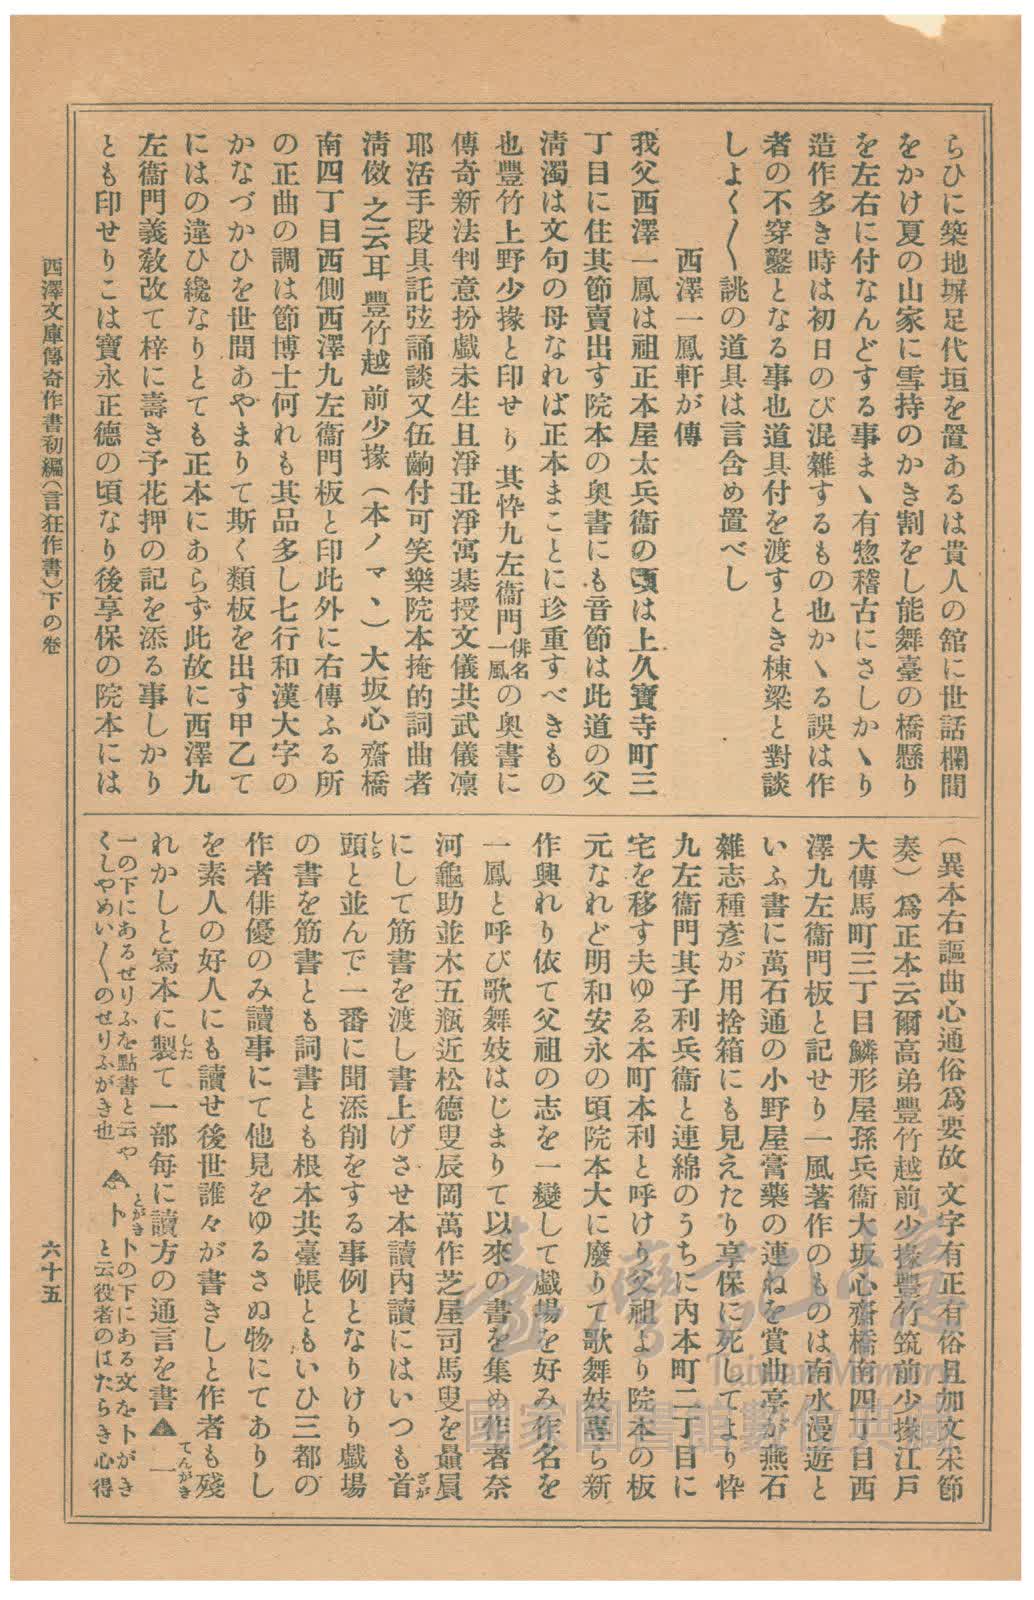 らひに築地塀足代垣を置あるは貴人の舘に世話欄間
をかけ夏の山家に雪持のかき割をし能舞臺の橋懸り
を左右に付なんどする事まゝ有惣稽古にさしかゝり
造作多き時は初日のび混雜するもの也かゝる誤は作
者の不穿鑿となる事也道具付を渡すとき棟梁と對談
しよく〳〵誂の道具は言含め置べし
西澤一鳳軒が傳
我父西澤一鳳は祖正本屋太兵衞の頃は上久寶寺町三
丁目に住其節賣出す院本の奥書にも音節は此道の父
淸濁は文句の母なれば正本まことに珍重すべきもの
也豐竹上野少掾と印せり其忰九左衞門俳名一風の奥書に
傳奇新法判意扮戲未生且淨丑淨寓基授文儀共武儀凛
耶活手段具託弦誦談又伍齣付可笑樂院本掩的詞曲者
淸儌之云耳豐竹越前少掾（本ノマヽ）大坂心齋橋
南四丁目西側西澤九左衞門板と印此外に右傳ふる所
の正曲の調は節博士何れも其品多し七行和漢大字の
かなづかひを世間あやまりて斯く類板を出す甲乙て
にはの違ひ纔なりとても正本にあらず此故に西澤九
左衞門義敎改て梓に壽き予花押の記を添る事しかり
とも印せりこは寶永正德の頃なり後享保の院本には
（異本右謳曲心通俗爲要故文字有正有俗且加文宋節
奏）爲正本云爾高弟豐竹越前少掾豐竹筑前少掾江戸
大傳馬町三丁目鱗形屋孫兵衞大坂心齋橋南四丁目西
澤九左衞門板と記せり一風著作のものは南水漫遊と
いふ書に萬石通の小野屋膏藥の連ねを賞曲亭が燕石
雜志種彥が用捨箱にも見えたり享保に死してより忰
九左衞門其子利兵衞と連綿のうちに内本町二丁目に
宅を移す夫ゆゑ本町本利と呼けり父祖より院本の板
元なれど明和安永の頃院本大に廢りて歌舞妓專ら新
作興れり依て父祖の志を一變して戲場を好み作名を
一鳳と呼び歌舞妓はじまりて以來の書を集め作者奈
河龜助並木五瓶近松德叟辰岡萬作芝屋司馬叟を贔屓
にして筋書を渡し書上げさせ本讀内讀にはいつも首ざが
頭しらと並んで一番に聞添削をする事例となりけり戲場
の書を筋書とも詞書とも根本共臺帳ともいひ三都の
作者俳優のみ讀事にて他見をゆるさぬ物にてありし
を素人の好人にも讀せ後世誰々が書きしと作者も殘
れかしと寫本に製したて一部每に讀方の通言を書 一てんがき
一の下にあるせりふを點書と云や
くしやめい〳〵のせりふがき也 トとがき トの下にある文をトがき
と云役者のはたらき心得
西澤文庫傳奇作書初編（言狂作書）下の卷
六十五
臺灣記憶
Taiwan Memory
國家圖書館數位典藏